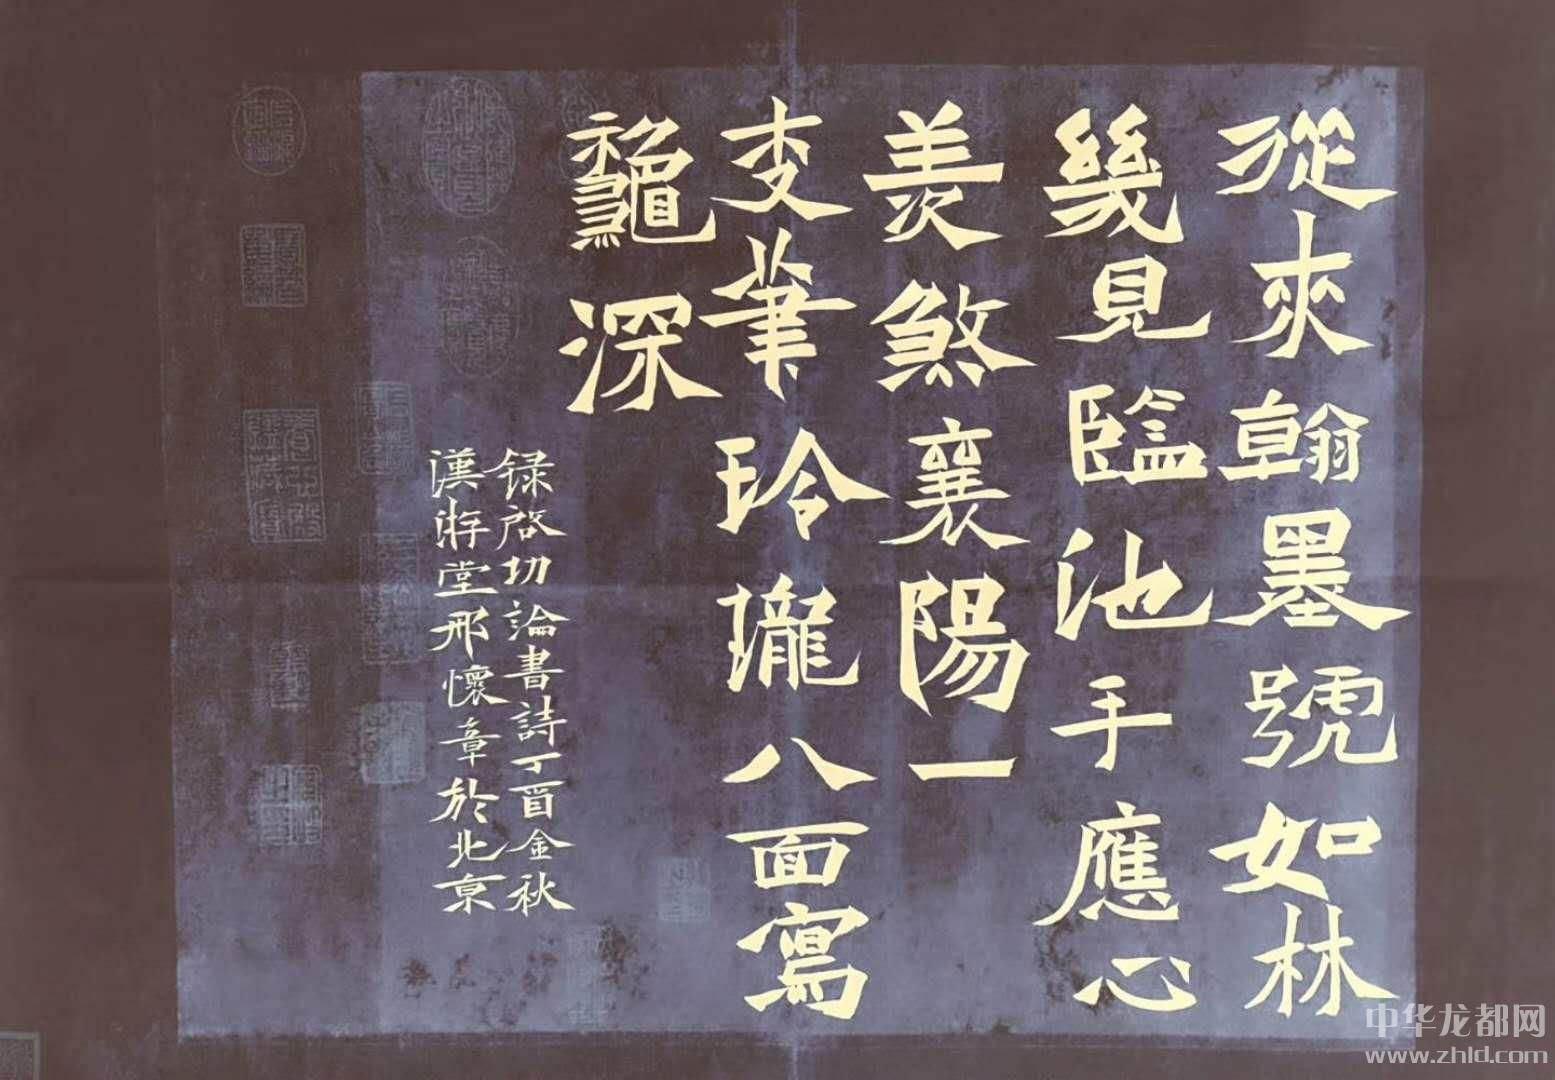 從來翰墨號如林
幾見臨池手應心
羨煞襄陽一
支筆玲瓏八面寫
龝深
録啓功論書詩丁酉金秋
漢游堂邢懷章於北京
中华龙都网
www.zhld.com